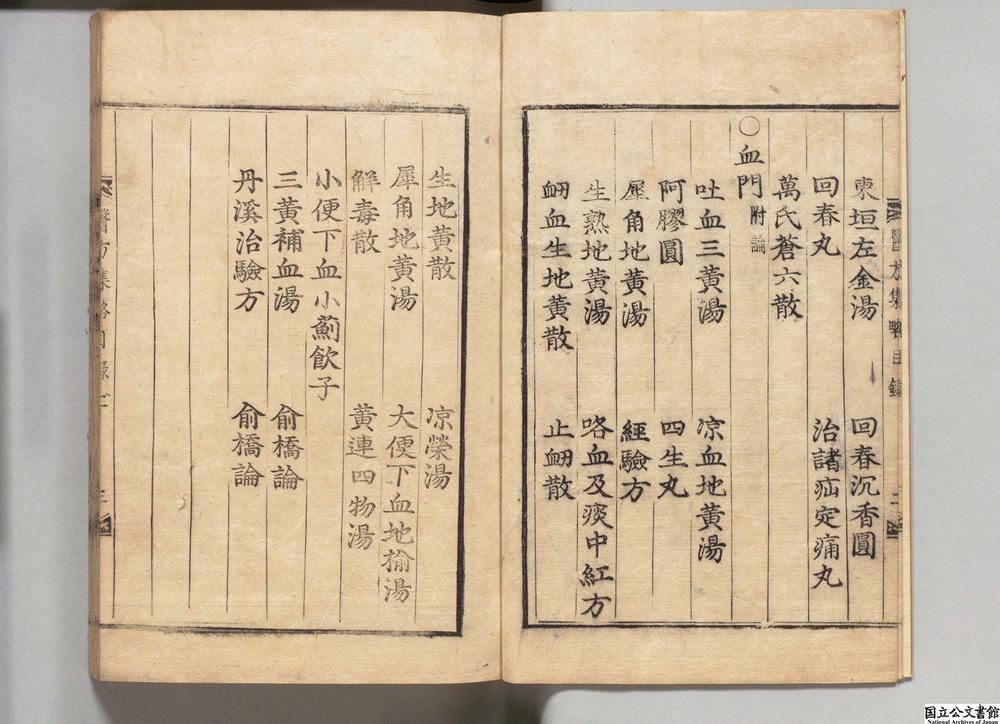 東垣左金湯 回春沉香圓
回春丸 治諸疝定痛丸
萬氏蒼六散
○血門附論
吐血三黃湯 凉血地黃湯
阿膠圓 四生丸
犀角地黃湯 經驗方
生熟地黃湯 咯血及痰中紅方
衄血生地黃散 止衄散
生地黃散 凉榮湯
犀角地黃湯 大便下血地榆湯
解毒散 黃連四物湯
小便下血小薊飲子
三黃補血湯 俞橋論
丹溪治驗方 俞橋論
醫方集略目錄
国立公文書館
National Archives of Japan